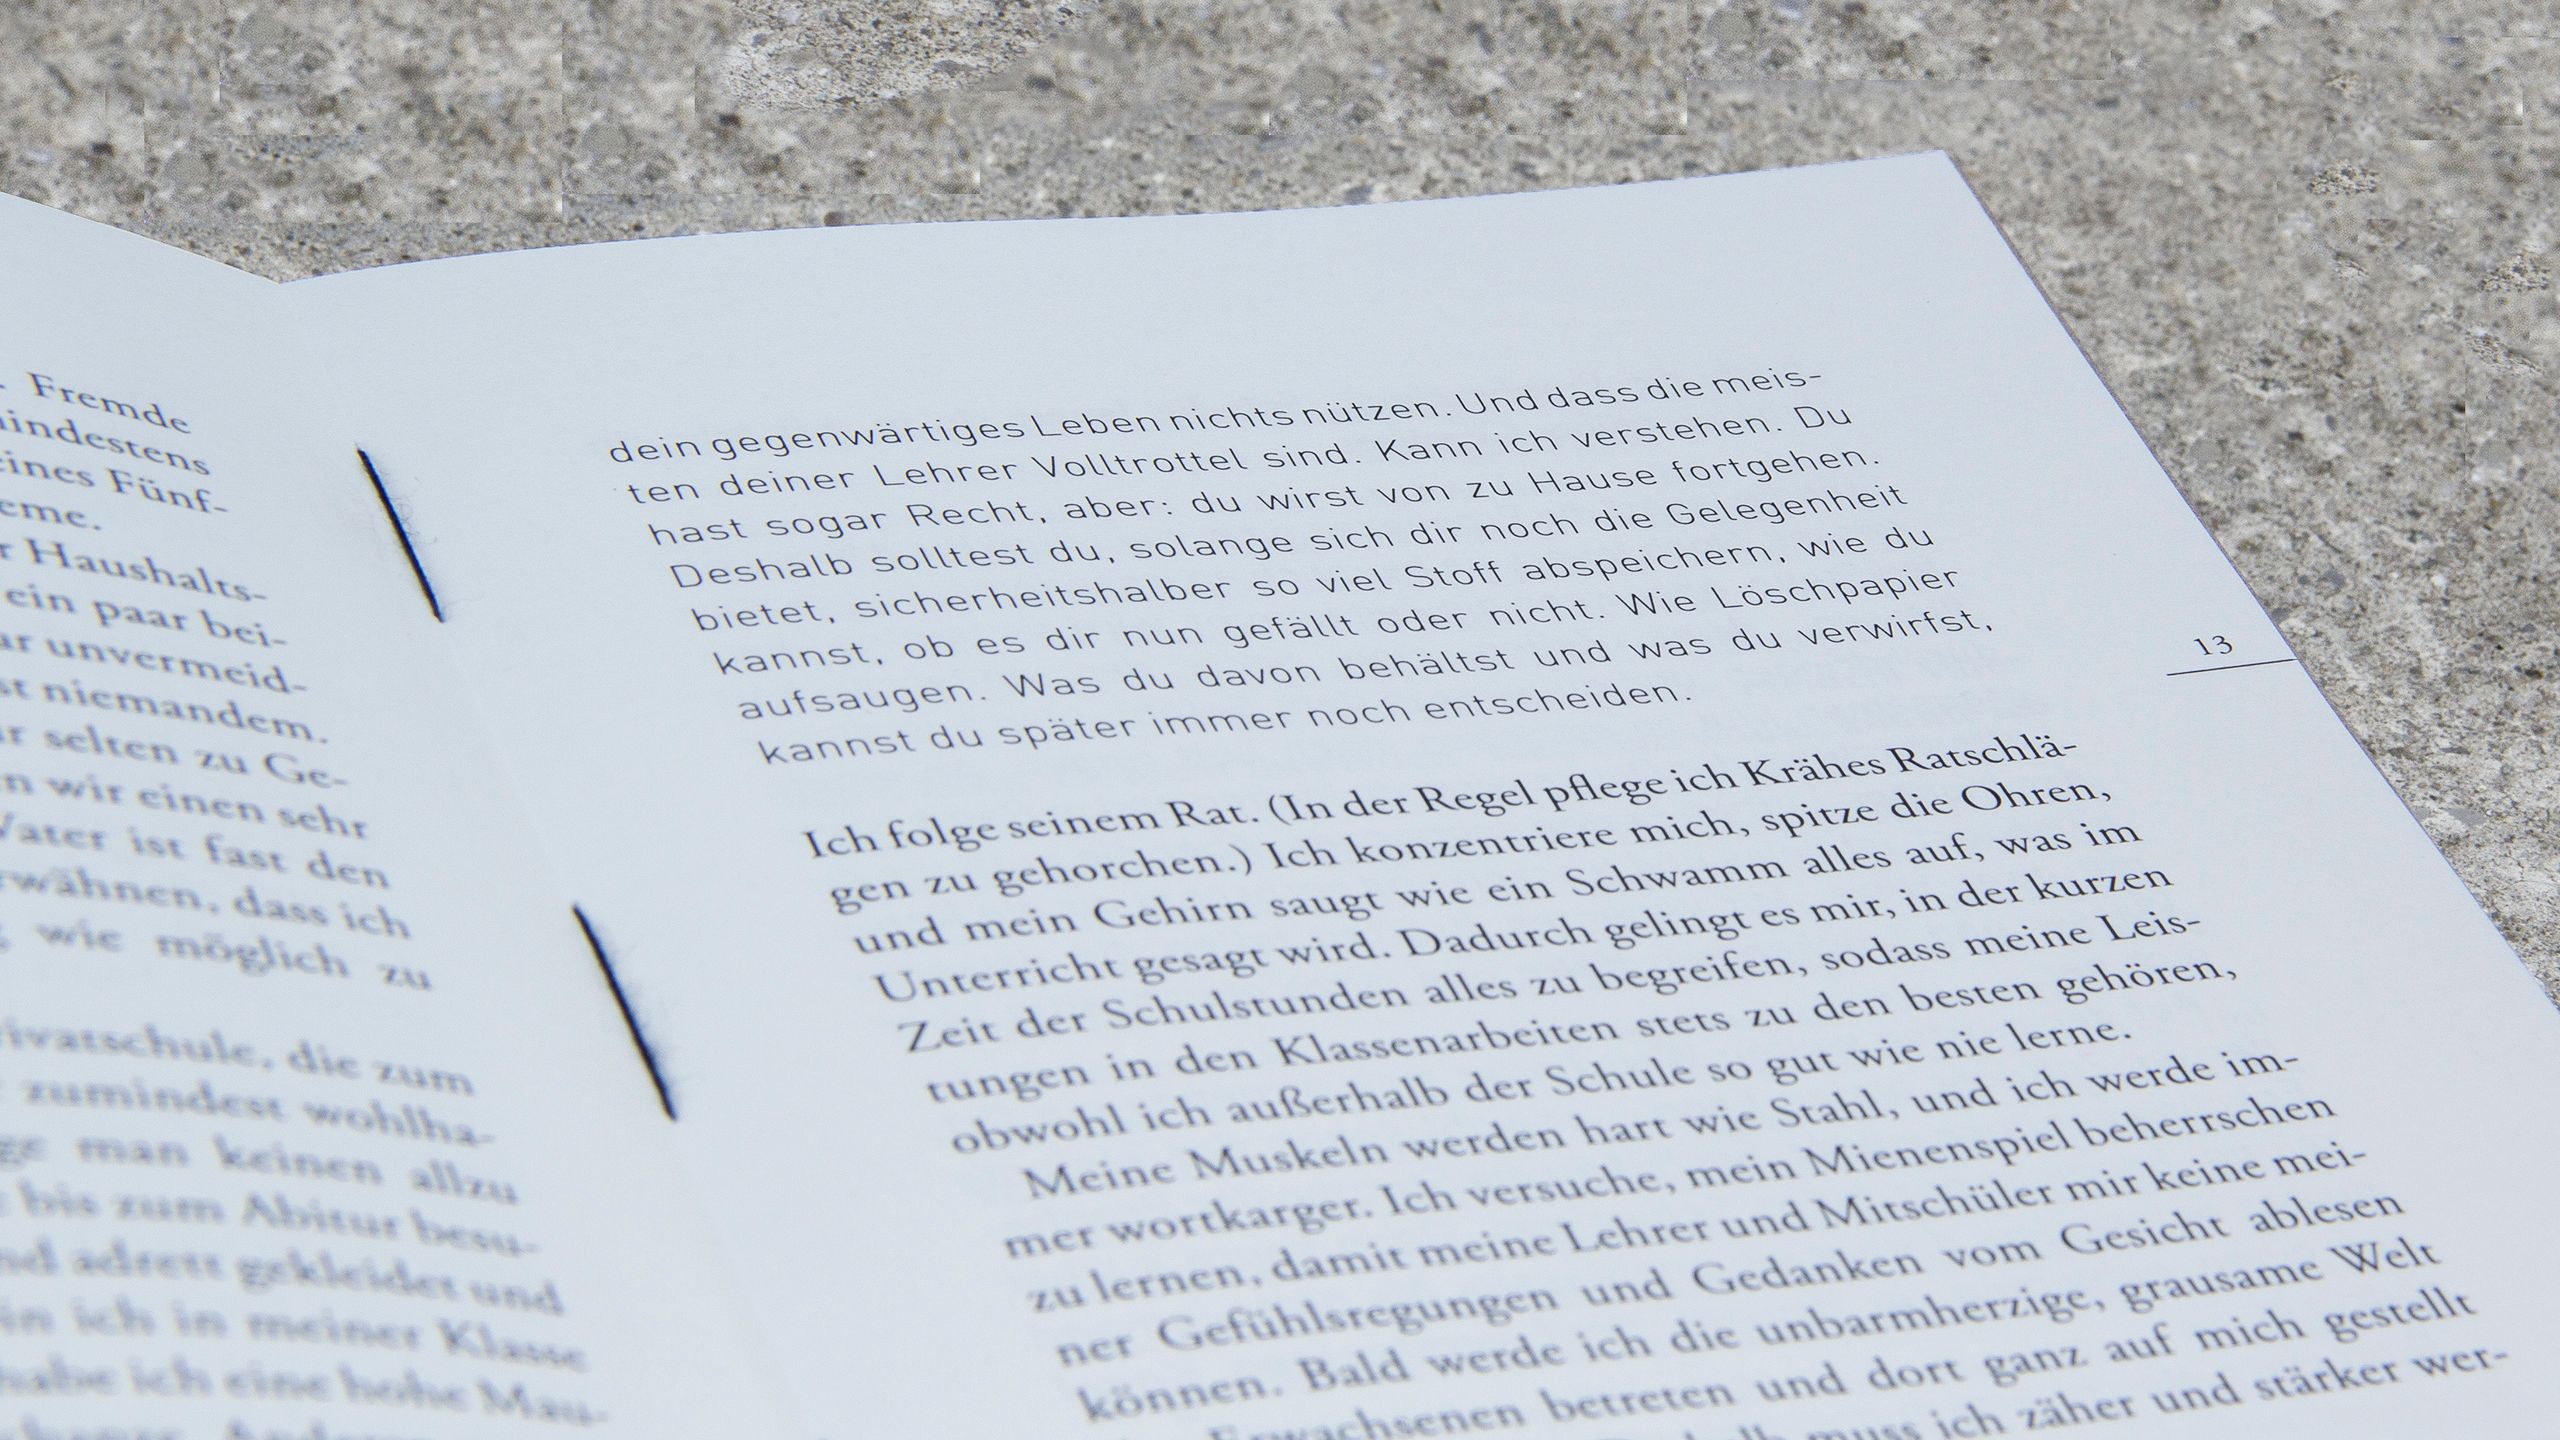 Fremde
mindestens
eines Fünf-
eme.
r Haushalts-
ein paar bei-
ar unvermeid-
st niemandem.
ur selten zu Ge-
n wir einen sehr
Vater ist fast den
rwähnen, dass ich
wie möglich zu
rivatschule, die zum
zumindest wohlha-
ge man keinen allzu
bis zum Abitur besu-
nd adrett gekleidet und
in ich in meiner Klasse
habe ich eine hohe Mau-
dein gegenwärtiges Leben nichts nützen. Und dass die meis-
ten deiner Lehrer Volltrottel sind. Kann ich verstehen. Du
hast sogar Recht, aber: du wirst von zu Hause fortgehen.
Deshalb solltest du, solange sich dir noch die Gelegenheit
bietet, sicherheitshalber so viel Stoff abspeichern, wie du
kannst, ob es dir nun gefällt oder nicht. Wie Löschpapier
aufsaugen. Was du davon behältst und was du verwirfst,
kannst du später immer noch entscheiden.
13
Ich folge seinem Rat. (In der Regel pflege ich Krähes Ratschlä-
gen zu gehorchen.) Ich konzentriere mich, spitze die Ohren,
und mein Gehirn saugt wie ein Schwamm alles auf, was im
Unterricht gesagt wird. Dadurch gelingt es mir, in der kurzen
Zeit der Schulstunden alles zu begreifen, sodass meine Leis-
tungen in den Klassenarbeiten stets zu den besten gehören,
obwohl ich außerhalb der Schule so gut wie nie lerne.
Meine Muskeln werden hart wie Stahl, und ich werde im-
mer wortkarger. Ich versuche, mein Mienenspiel beherrschen
zu lernen, damit meine Lehrer und Mitschüler mir keine mei-
ner Gefühlsregungen und Gedanken vom Gesicht ablesen
können. Bald werde ich die unbarmherzige, grausame Welt
Erwachsenen betreten und dort ganz auf mich gestellt
muss ich zäher und stärker wer-